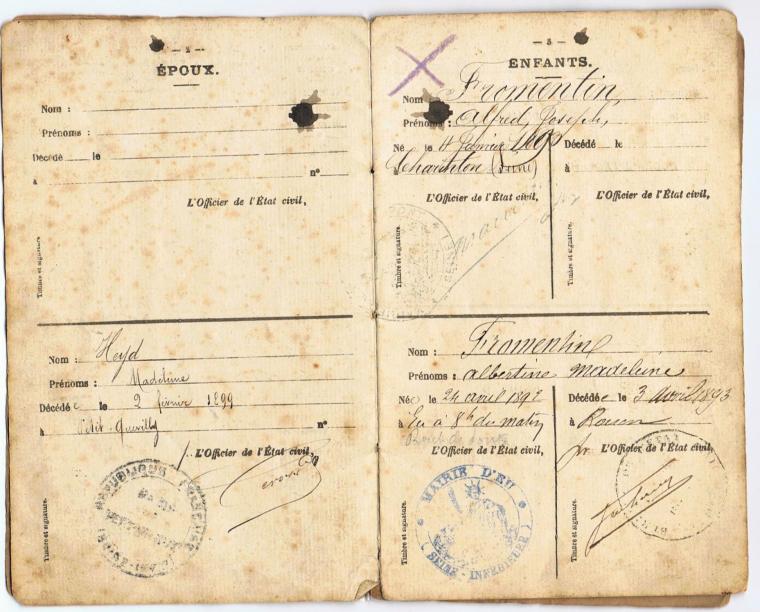 — 2 —
ÉPOUX.
Nom :
Prénoms :
Décédé le
à n°
L'Officier de l'État civil,
Timbre et signature.
Nom : Heyd
Prénoms : Madeleine
Décédée le 2 février 1899
à Petit-Quevilly n°
L'Officier de l'État civil,
Timbre et signature.
RÉPUBLIQUE FRANÇAISE
— 3 —
ENFANTS.
Nom : Fromentin
Prénoms : Alfred, Joseph,
Né le 4 Janvier
à Charenton (Seine)
L'Officier de l'État civil,
Timbre et signature.
Décédé le
à
L'Officier de l'État civil,
Timbre et signature.
Nom : Fromentin
Prénoms : albertine madeleine
Née le 24 avril
à Eu à 8h du matin
L'Officier de l'État civil,
Timbre et signature.
MAIRIE D'EU
(SEINE-INFÉRIEURE)
Décédée le 3 avril 1893
à Rouen
pr L'Officier de l'État civil,
Timbre et signature.